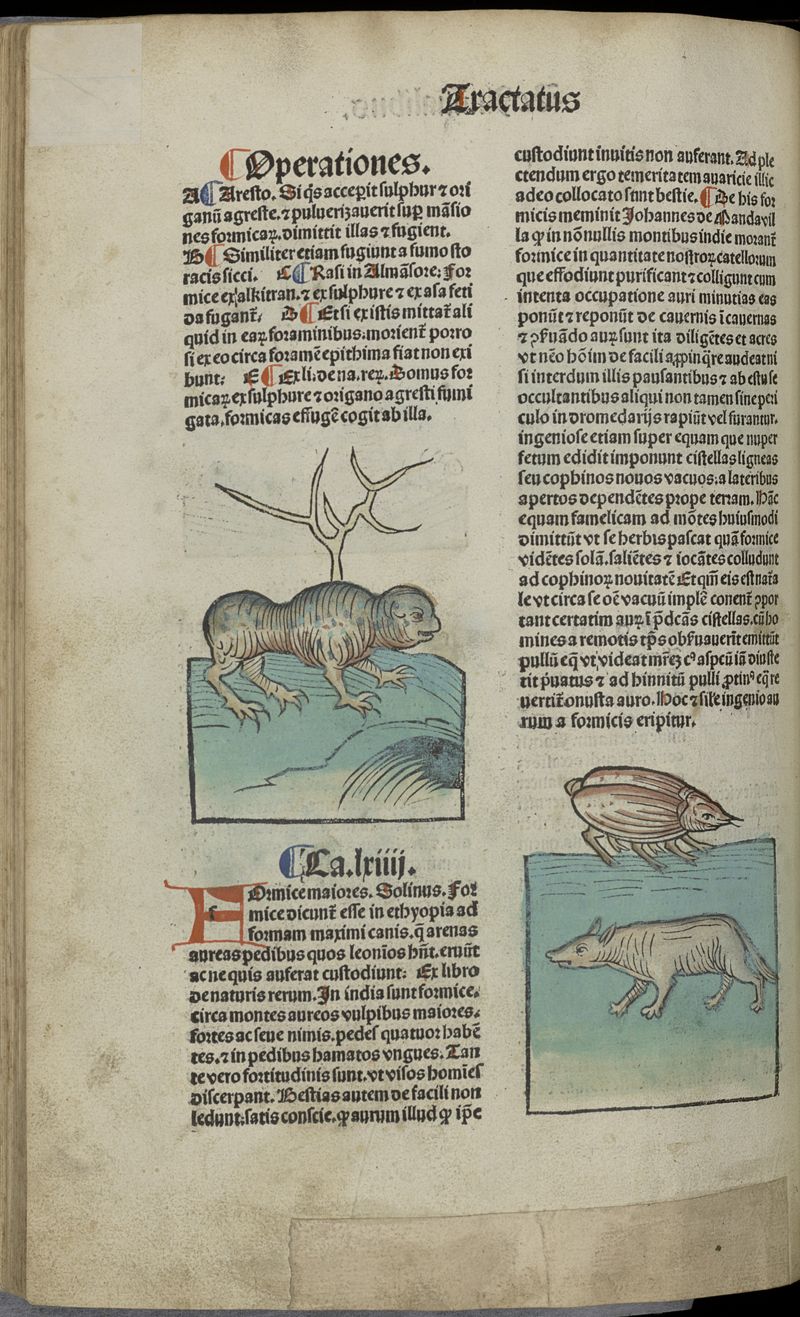 Tractatus
Operationes.
A Aresto. Si q̄s acceperit sulphur ⁊ ori
ganū agreste. ⁊ pulverizauerit sup̱ māsio
nes formicaꝝ. dimittit illas ⁊ fugient.
B Similiter etiam fugiunt a fumo sto
racis sicci. C Rasi in Almāsore: For
mice ex alkitran. ⁊ ex sulphure ⁊ ex asa feti
da fugant̄. D Et si ex istis mittat̄ ali
quid in eaꝝ foraminibus: morient̄ porro
si ex eo circa foramē epithima fiat non exi
bunt: E Ex li: de na. reꝝ. Domus for
micaꝝ ex sulphure ⁊ origano agresti fumi
gata. formicas effugē cogit ab illa.
Ca. lxiiij.
FOrmice maiores. Solinus. For
mice dicunt̄ esse in ethyopia ad
formam maximi canis. q̄ arenas
aureas pedibus quos leonīos hn̄t. eruūt
ac ne quis auferat custodiunt: Ex libro
de naturis rerum. In india sunt formice.
circa montes aureos vulpibus maiores.
fortes ac seue nimis. pedes quatuor habē
tes. ⁊ in pedibus hamatos vngues. Tan
te vero fortitudinis sunt. vt visos homīes
discerpant. Bestias autem de facili non
ledunt: satis conscie. ꝙ aurum illud ꝙ ip̄e
custodiunt inuitis non auferant. Ad ple
ctendum ergo temeritatem auaricie illic
adeo collocato sunt bestie. De his for
micis meminit Johannes de Mandavil
la ꝙ in nōnullis montibus indie morant̄
formice in quantitate nostroꝝ catellorum
que effodiunt purificant ⁊ colligunt cum
intenta occupatione auri minutias eas
ponūt ⁊ reponūt de cauernis ī cauernas
⁊ ꝯseruādo auꝝ sunt ita diligētes et acres
vt nēo hōim de facili appinq̄re audeat ni
si interdum illis pausantibus ⁊ ab estu se
occultantibus aliqui non tamen sine peri
culo in dromedarijs rapiūt vel furantur.
ingeniose etiam super equam que nuper
fetum edidit imponunt cistellas ligneas
seu cophinos nouos vacuos: a lateribus
apertos dependētes prope terram. Hāc
equam famelicam ad mōtes huiusmodi
dimittūt vt se herbis pascat quā formice
vidētes solā. saliētes ⁊ iocātes colludunt
ad cophinoꝝ nouitatē Et qm̄ eis est nat̄a
le vt circa se oē vacuū implē conent̄ ꝯpor
tant certatim auꝝ ī p̄dcās cistellas. cū ho
mines a remotis tp̄s obseruauerīt emittūt
pullū eq̄ vt videat mr̄eꝫ
tit p̄uatus ⁊ ad hinnitū pulli ꝓtinꝰ eq̄ re
uertit̄ onusta auro. Hoc ⁊ sil̄e ingenio au
rum a formicis eripitur.